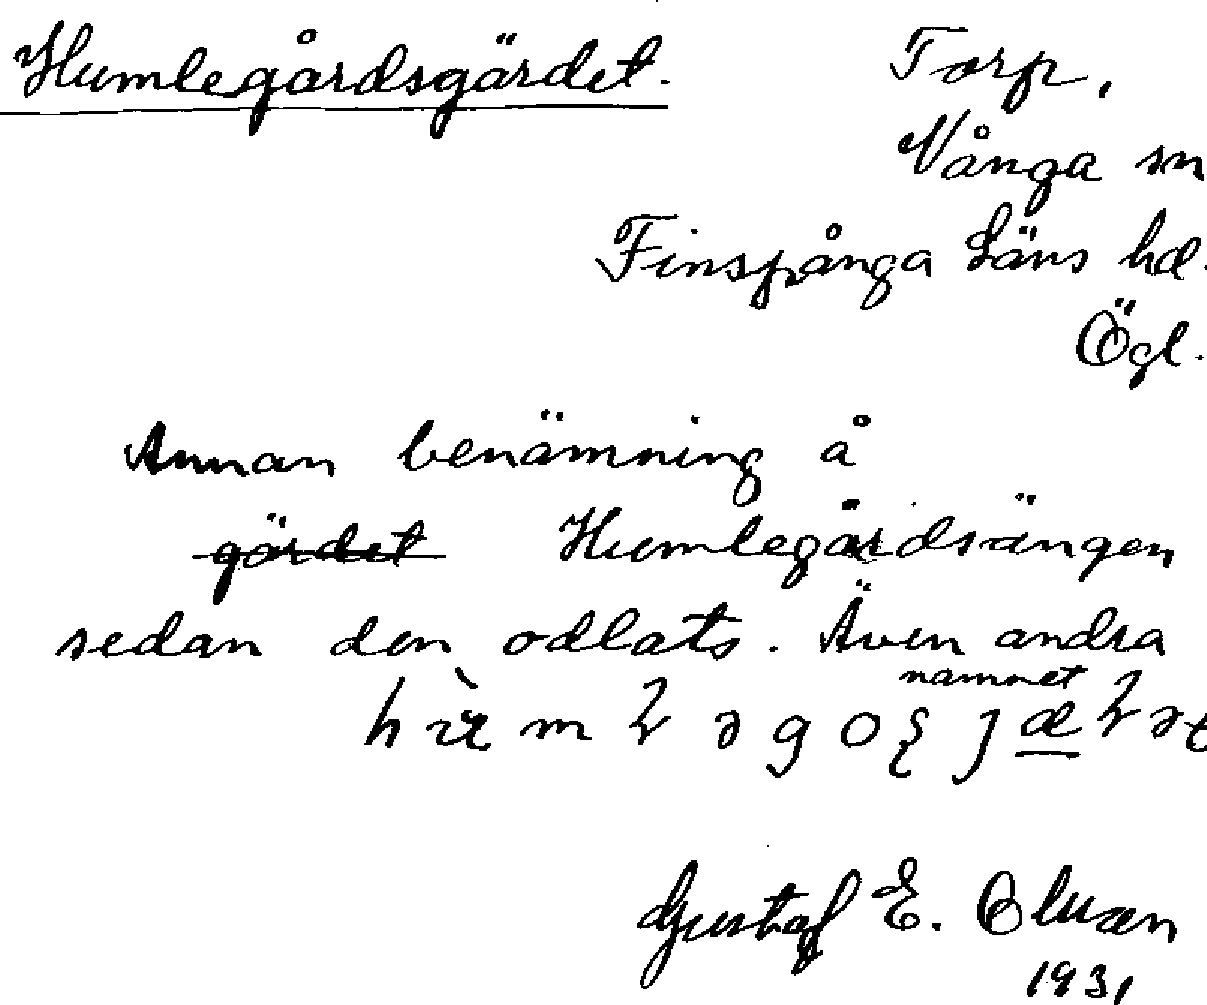 Humlegårdsgärdet.
Torp,
Vånga sn
Finspånga Läns hd.
Ögl.
Annan benämning å
gärdet Humlegårdsängen
sedan den odlats. Även andra
namnet
Gustaf E.
1931